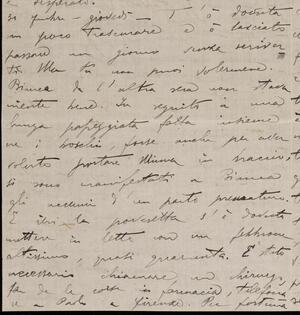 disperati.
si fuhr - giovedì - T'ò dovuta
un poco trascurare e ò lasciato
passare un giorno senza scriver
ti. Ma tu non puoi volermene.
Bianca da l'altra sera non stava
niente bene. In seguito a una
lunga passeggiata fatta insieme
ne i boschi, forse anche per aver
voluto portare Mimma in braccio,
si sono manifestati a Bianca
gli accenni d'un parto prematuro.
E ieri la poveretta s'è dovuta
mettere in letto con un febbrone
altissimo, quasi quaranta. È stato
necessario chiamare un chirurgo,
far de le corse in farmacia, telefona
re a Paolo a Firenze. Per fortuna